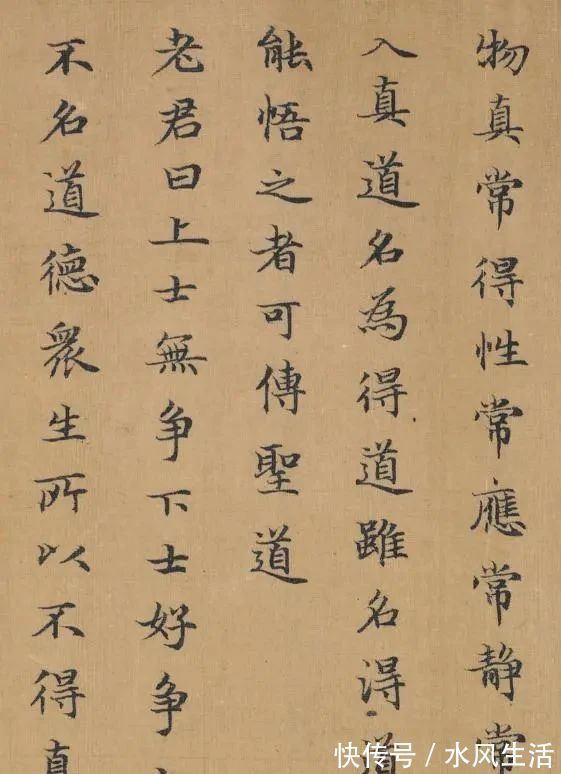 物真常得性常應常静常
入真道名為得道雖名得道
能悟之者可傳聖道
老君曰上士無争下士好争
不名道德衆生所以不得真
快传号/水风生活